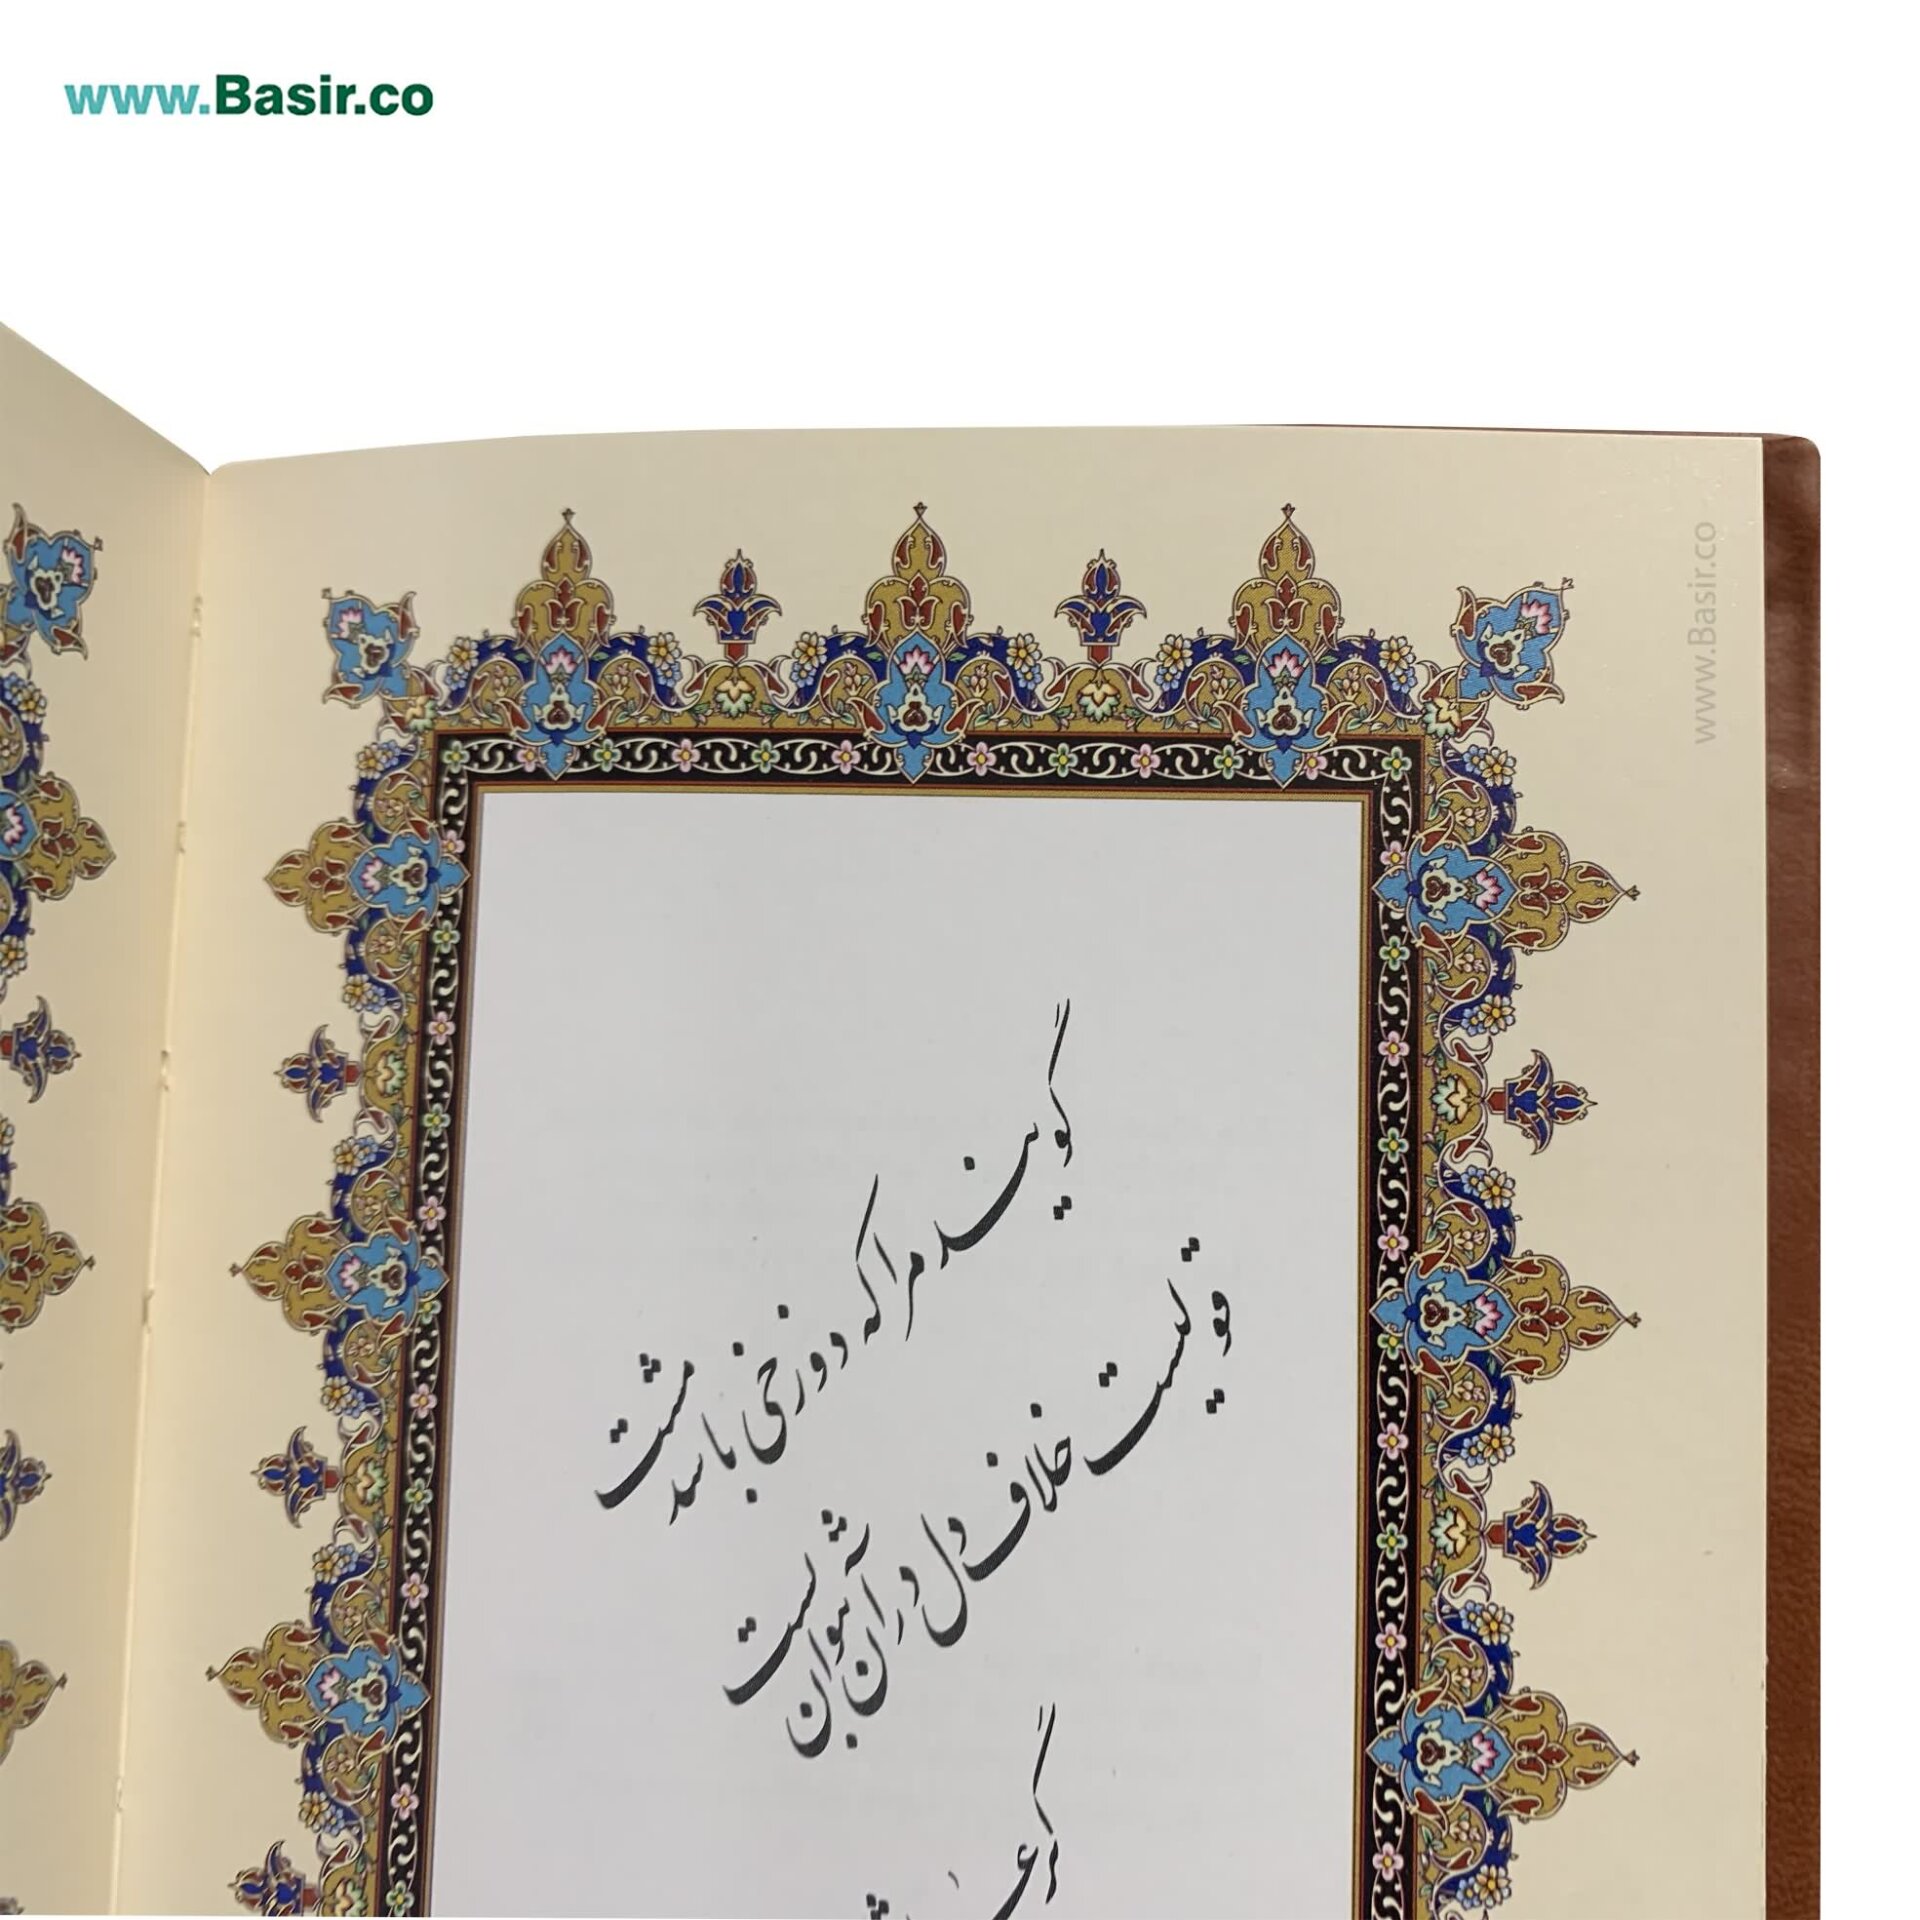 www.Basir.co
www.Basir.co
گویند مرا که دوزخی باشد مست
قولیست خلاف دل در آن نتوان بست
گر